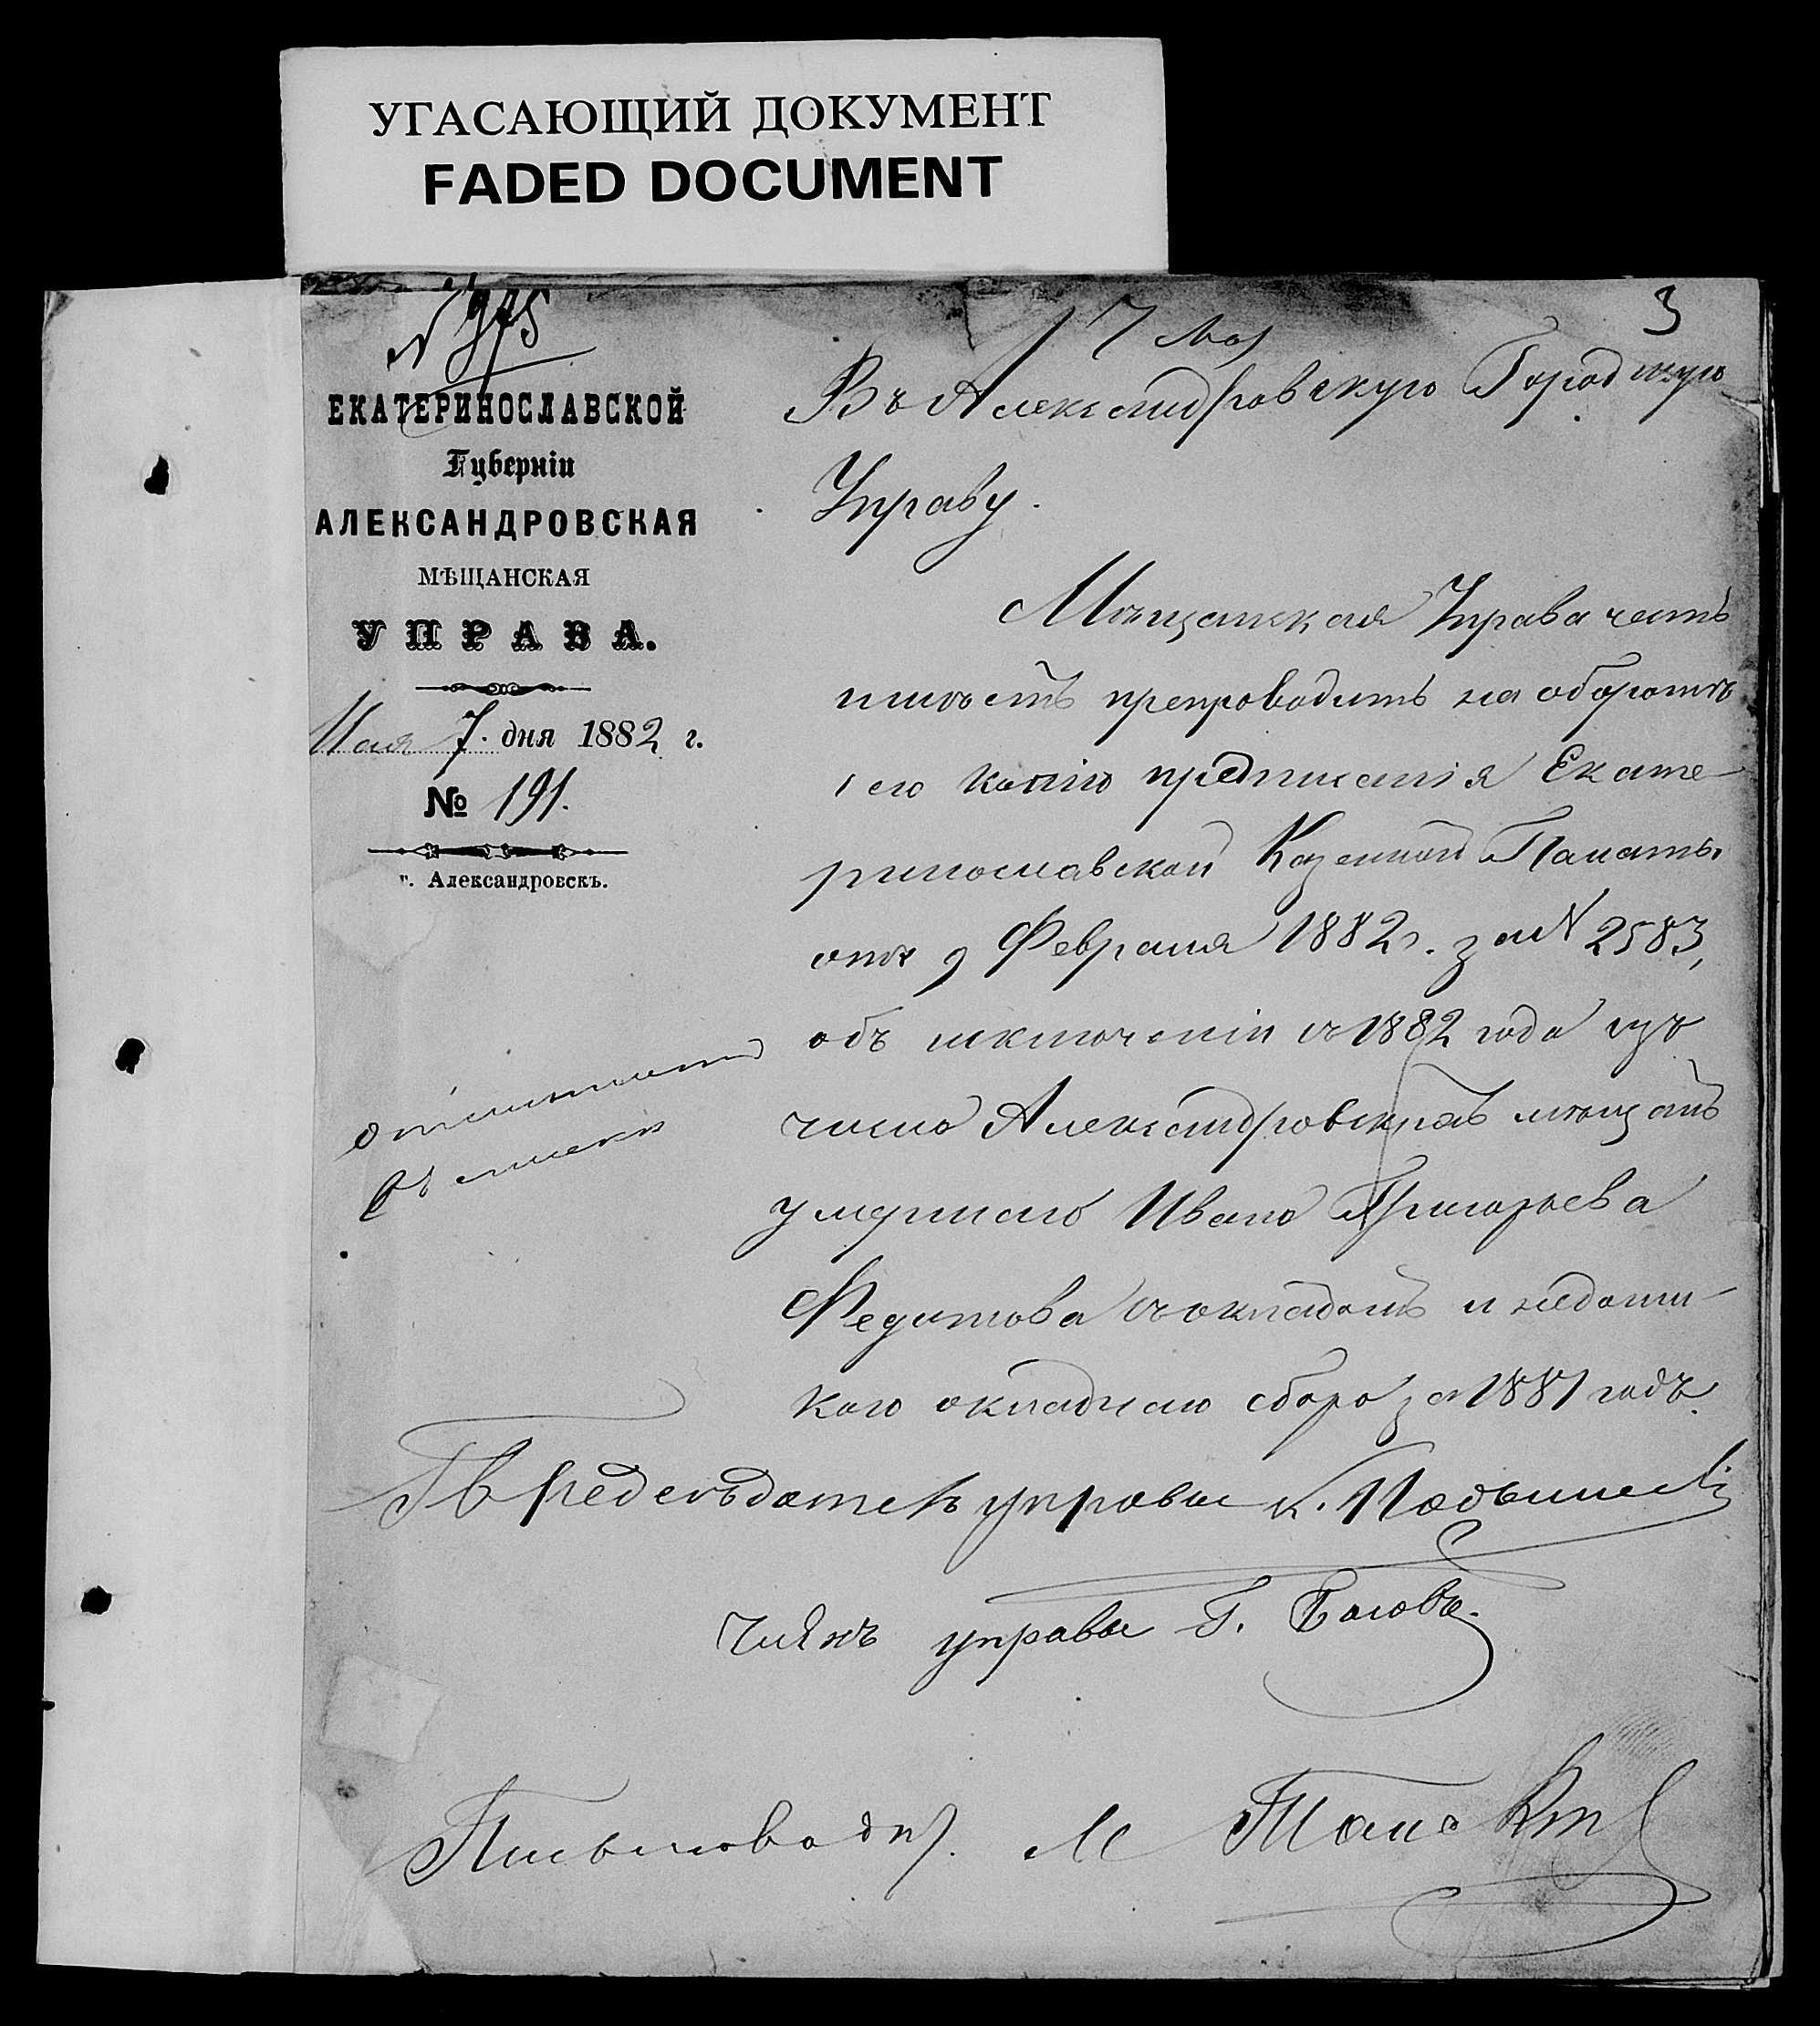 УГАСАЮЩИЙ ДОКУМЕНТ
FADED DOCUMENT
3
N 975
7 Мая
ЕКАТЕРИНОСЛАВСКОЙ
Губерніи
АЛЕКСАНДРОВСКАЯ
МѢЩАНСКАЯ
УПРАВА.
Мая 7. дня 1882 г.
№ 191.
г. Александровскъ.
Въ Александровскую Городскую
Управу.
Мѣщанская Управа честь
имѣетъ препроводить на оборотѣ
сего копію предписанія Екате-
ринославской Казенной Палаты
отъ 9 Февраля 1882 г. за N 2583,
объ исключеніи съ 1882 года изъ
числа Александровскихъ мѣщанъ
умершаго Ивана Григорьева
съ окладомъ и недоим-
кою окладнаго сбора за 1881 годъ.
Предсѣдатель управы К.
Члѣнъ управы Г.
Письмоводит. М